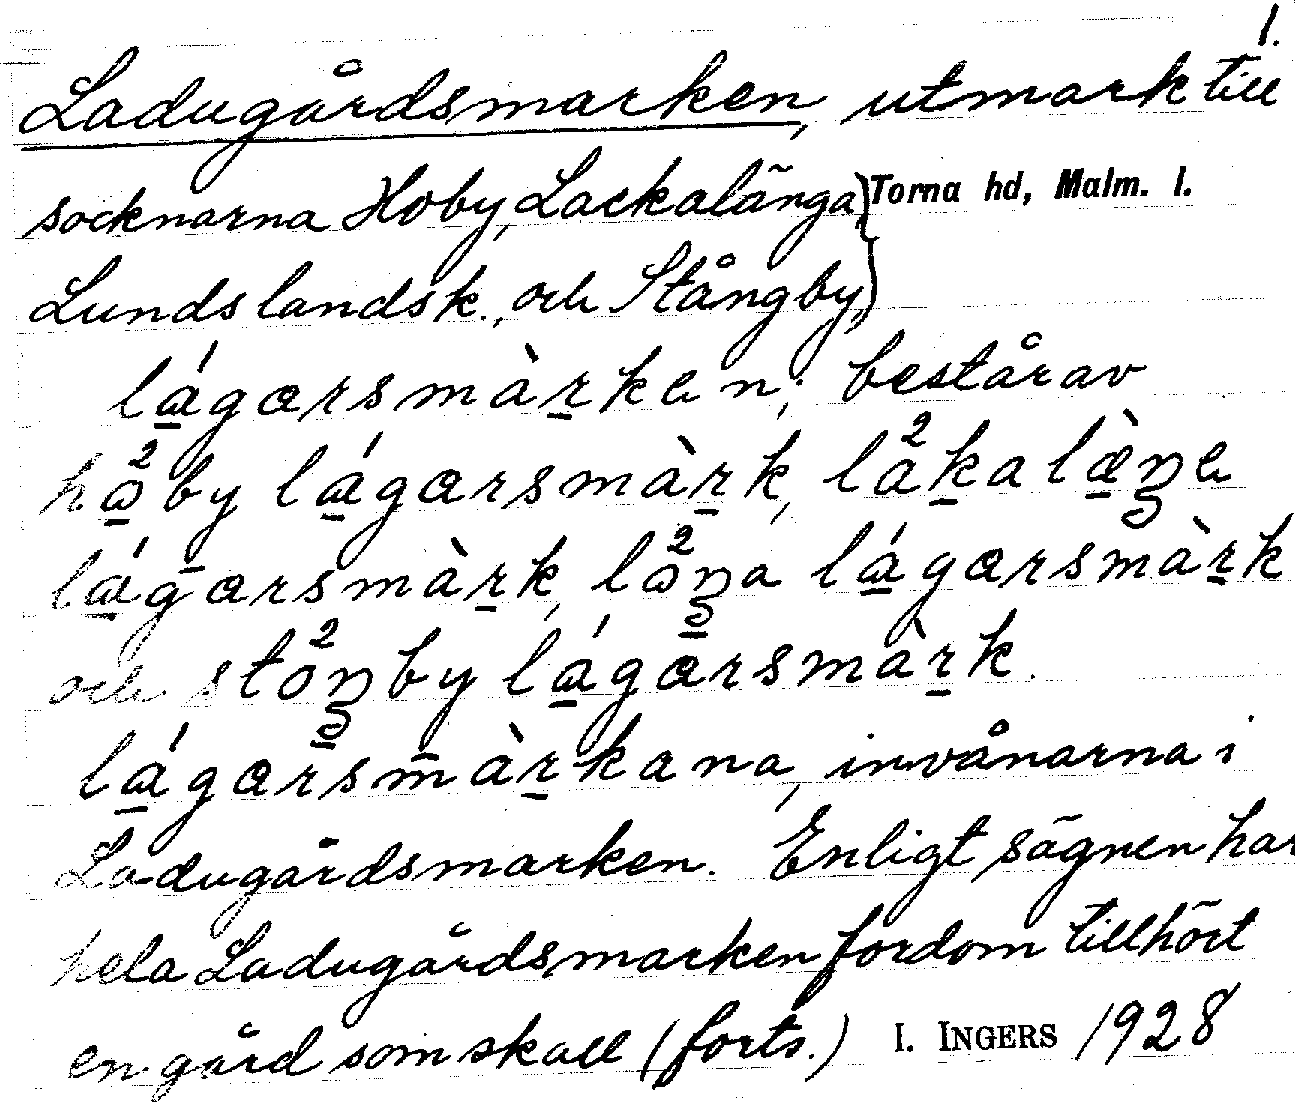 1.
Ladugårdsmarken, utmark till
socknarna Hoby, Lackalänga, } Torna hd, Malm. l.
Lunds landsk., och Stångby,
lá̱gœrsmàṟken; består av
hå̱²by lá̱gœrsmàṟk, lå²ḵalæ̱̀ŋa
lá̱gœrsmàṟk, lo²ŋa lá̱gœrsmàṟk
och sto²ŋby lá̱gœrsmàṟk.
lá̱gœrsmàṟkana, invånarna i
Ladugårdsmarken. Enligt sägnen har
hela Ladugårdsmarken fordom tillhört
en gård som skall (forts.) I. INGERS 1928